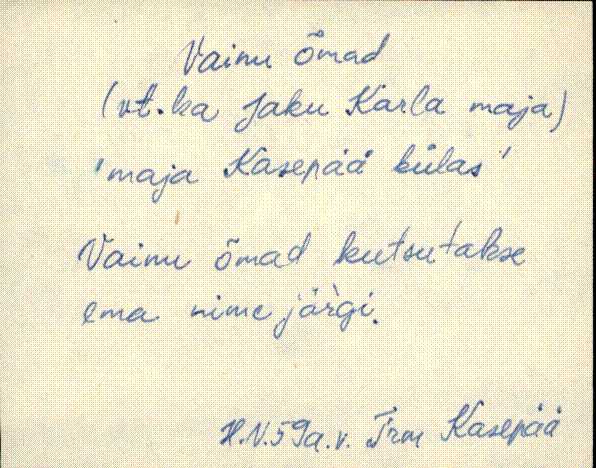 Vainu õmad
(vt. ka Jaku Karla maja)
'maja Kasepää külas'
Vainu õmad kutsutakse
ema nime järgi.
H.N. 59 a.v. Trm Kasepää